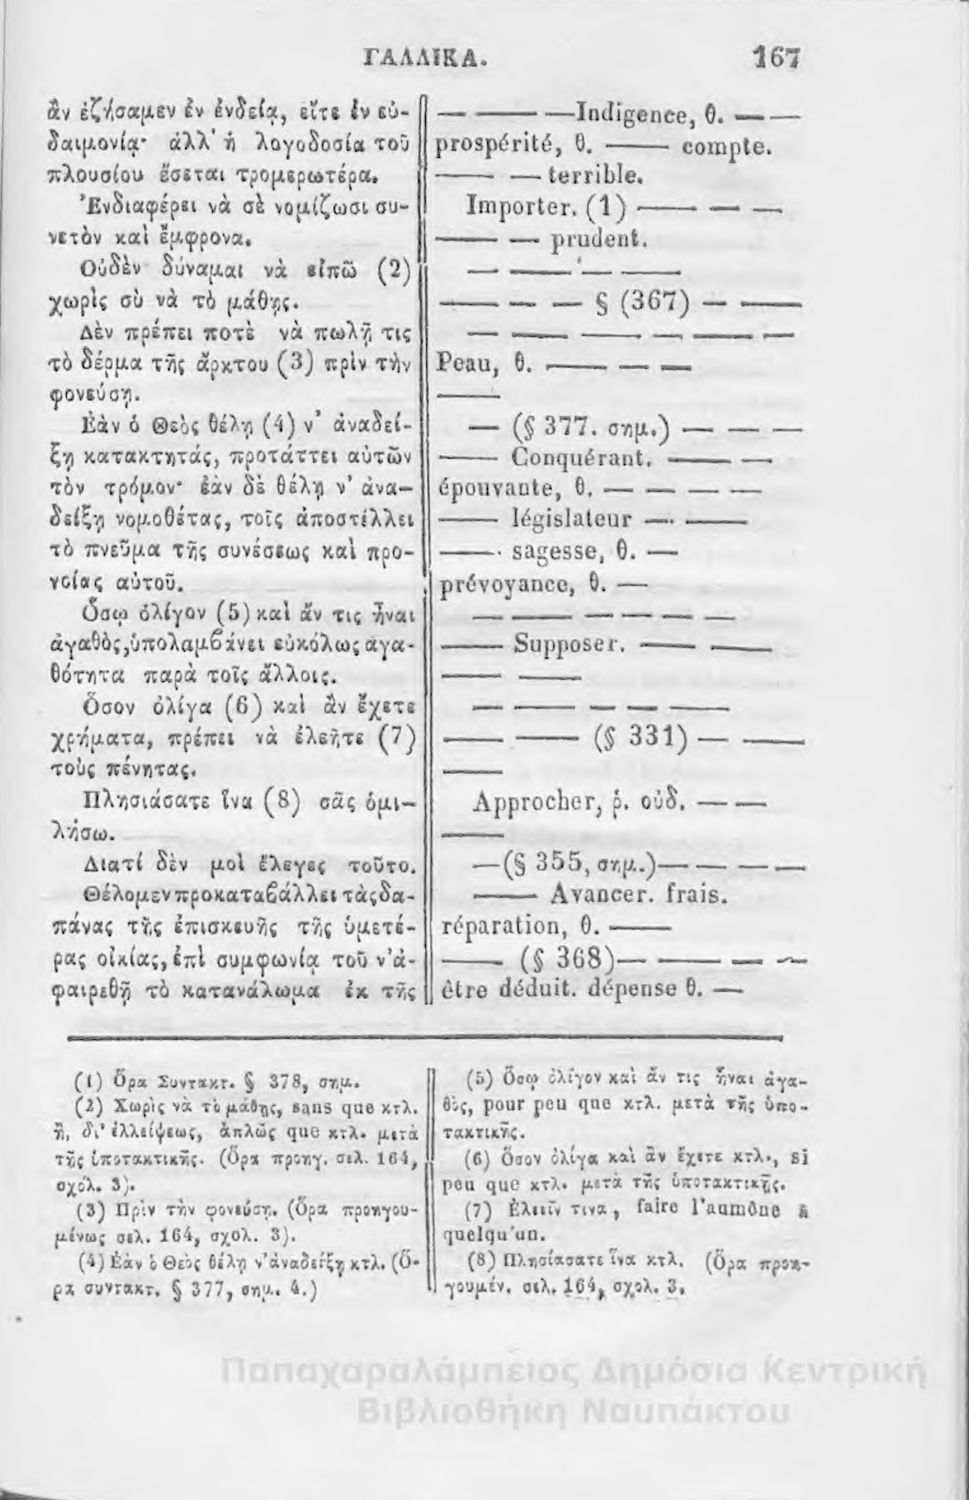 ΓΑΛΛΙΚΑ. 167
ἂν ἐζήσαμεν ἐν ἐνδείᾳ, εἴτε ἐν εὐ-
δαιμονίᾳ· ἀλλ' ἡ λογοδοσία τοῦ
πλουσίου ἔσεται τρομερωτέρα.
Ἐνδιαφέρει νὰ σὲ νομίζωσι συ-
νετὸν καὶ ἔμφρονα.
Οὐδὲν δύναμαι νὰ εἰπῶ (2)
χωρὶς σὺ νὰ τὸ μάθῃς.
Δὲν πρέπει ποτὲ νὰ πωλῇ τις
τὸ δέρμα τῆς ἄρκτου (3) πρὶν τὴν
φονεύσῃ.
Ἐὰν ὁ Θεὸς θέλῃ (4) ν' ἀναδεί-
ξῃ κατακτητάς, προτάττει αὐτῶν
τὸν τρόμον· ἐὰν δὲ θέλῃ ν' ἀνα-
δείξῃ νομοθέτας, τοῖς ἀποστέλλει
τὸ πνεῦμα τῆς συνέσεως καὶ προ-
νοίας αὐτοῦ.
Ὅσῳ ὀλίγον (5) καὶ ἄν τις ἦναι
ἀγαθὸς, ὑπολαμβάνει εὐκόλως ἀγα-
θότητα παρὰ τοῖς ἄλλοις.
Ὅσον ὀλίγα (6) καὶ ἂν ἔχετε
χρήματα, πρέπει νὰ ἐλεῆτε (7)
τοὺς πένητας.
Πλησιάσατε ἵνα (8) σᾶς ὁμι-
λήσω.
Διατί δὲν μοὶ ἔλεγες τοῦτο.
Θέλομεν προκαταβάλλει τὰς δα-
πάνας τῆς ἐπισκευῆς τῆς ὑμετέ-
ρας οἰκίας, ἐπὶ συμφωνίᾳ τοῦ ν' ἀ-
φαιρεθῇ τὸ κατανάλωμα ἐκ τῆς
— — —Indigence, θ. — —
prospérité, θ. — compte.
— — terrible.
Importer. (1) — — —
— — prudent.
— — — —
— — — § (367) — —
— — — — — —
Peau, θ. — — —
—
— (§ 377. σημ.) — — —
— Conquérant. — —
épouvante, θ. — — — —
— législateur — —
— sagesse, θ. —
prévoyance, θ. —
— — — — — —
— Supposer. — —
— —
— — — — —
— — (§ 331) — —
—
Approcher, ῥ. οὐδ. — —
—
—(§ 355, σημ.)— — — —
— Avancer. frais.
réparation, θ. —
— (§ 368)— — — —
être déduit. dépense θ. —
(1) Ὅρα Συντακτ. § 378, σημ.
(2) Χωρὶς νὰ τὸ μάθῃς, sans que κτλ.
ἢ, δι' ἐλλείψεως, ἁπλῶς que κτλ. μετὰ
τῆς ὑποτακτικῆς. (Ὅρα προηγ. σελ. 164,
σχόλ. 3).
(3) Πρὶν τὴν φονεύσῃ. (Ὅρα προηγου-
μένως σελ. 164, σχολ. 3).
(4) Ἐὰν ὁ Θεὸς θέλῃ ν' ἀναδείξῃ κτλ. (Ὅ-
ρα συντακτ. § 377, σημ. 4.)
(5) Ὅσῳ ὀλίγον καὶ ἄν τις ἦναι ἀγα-
θὸς, pour peu que κτλ. μετὰ τῆς ὑπο-
τακτικῆς.
(6) Ὅσον ὀλίγα καὶ ἂν ἔχετε κτλ., si
peu que κτλ. μετὰ τῆς ὑποτακτικῆς.
(7) Ἐλεεῖν τινα, faire l'aumône à
quelqu'un.
(8) Πλησίασατε ἵνα κτλ. (Ὅρα προη-
γουμέν. σελ. 164, σχολ. 3.
Παπαχαραλάμπειος Δημόσια Κεντρική
Βιβλιοθήκη Ναυπάκτου